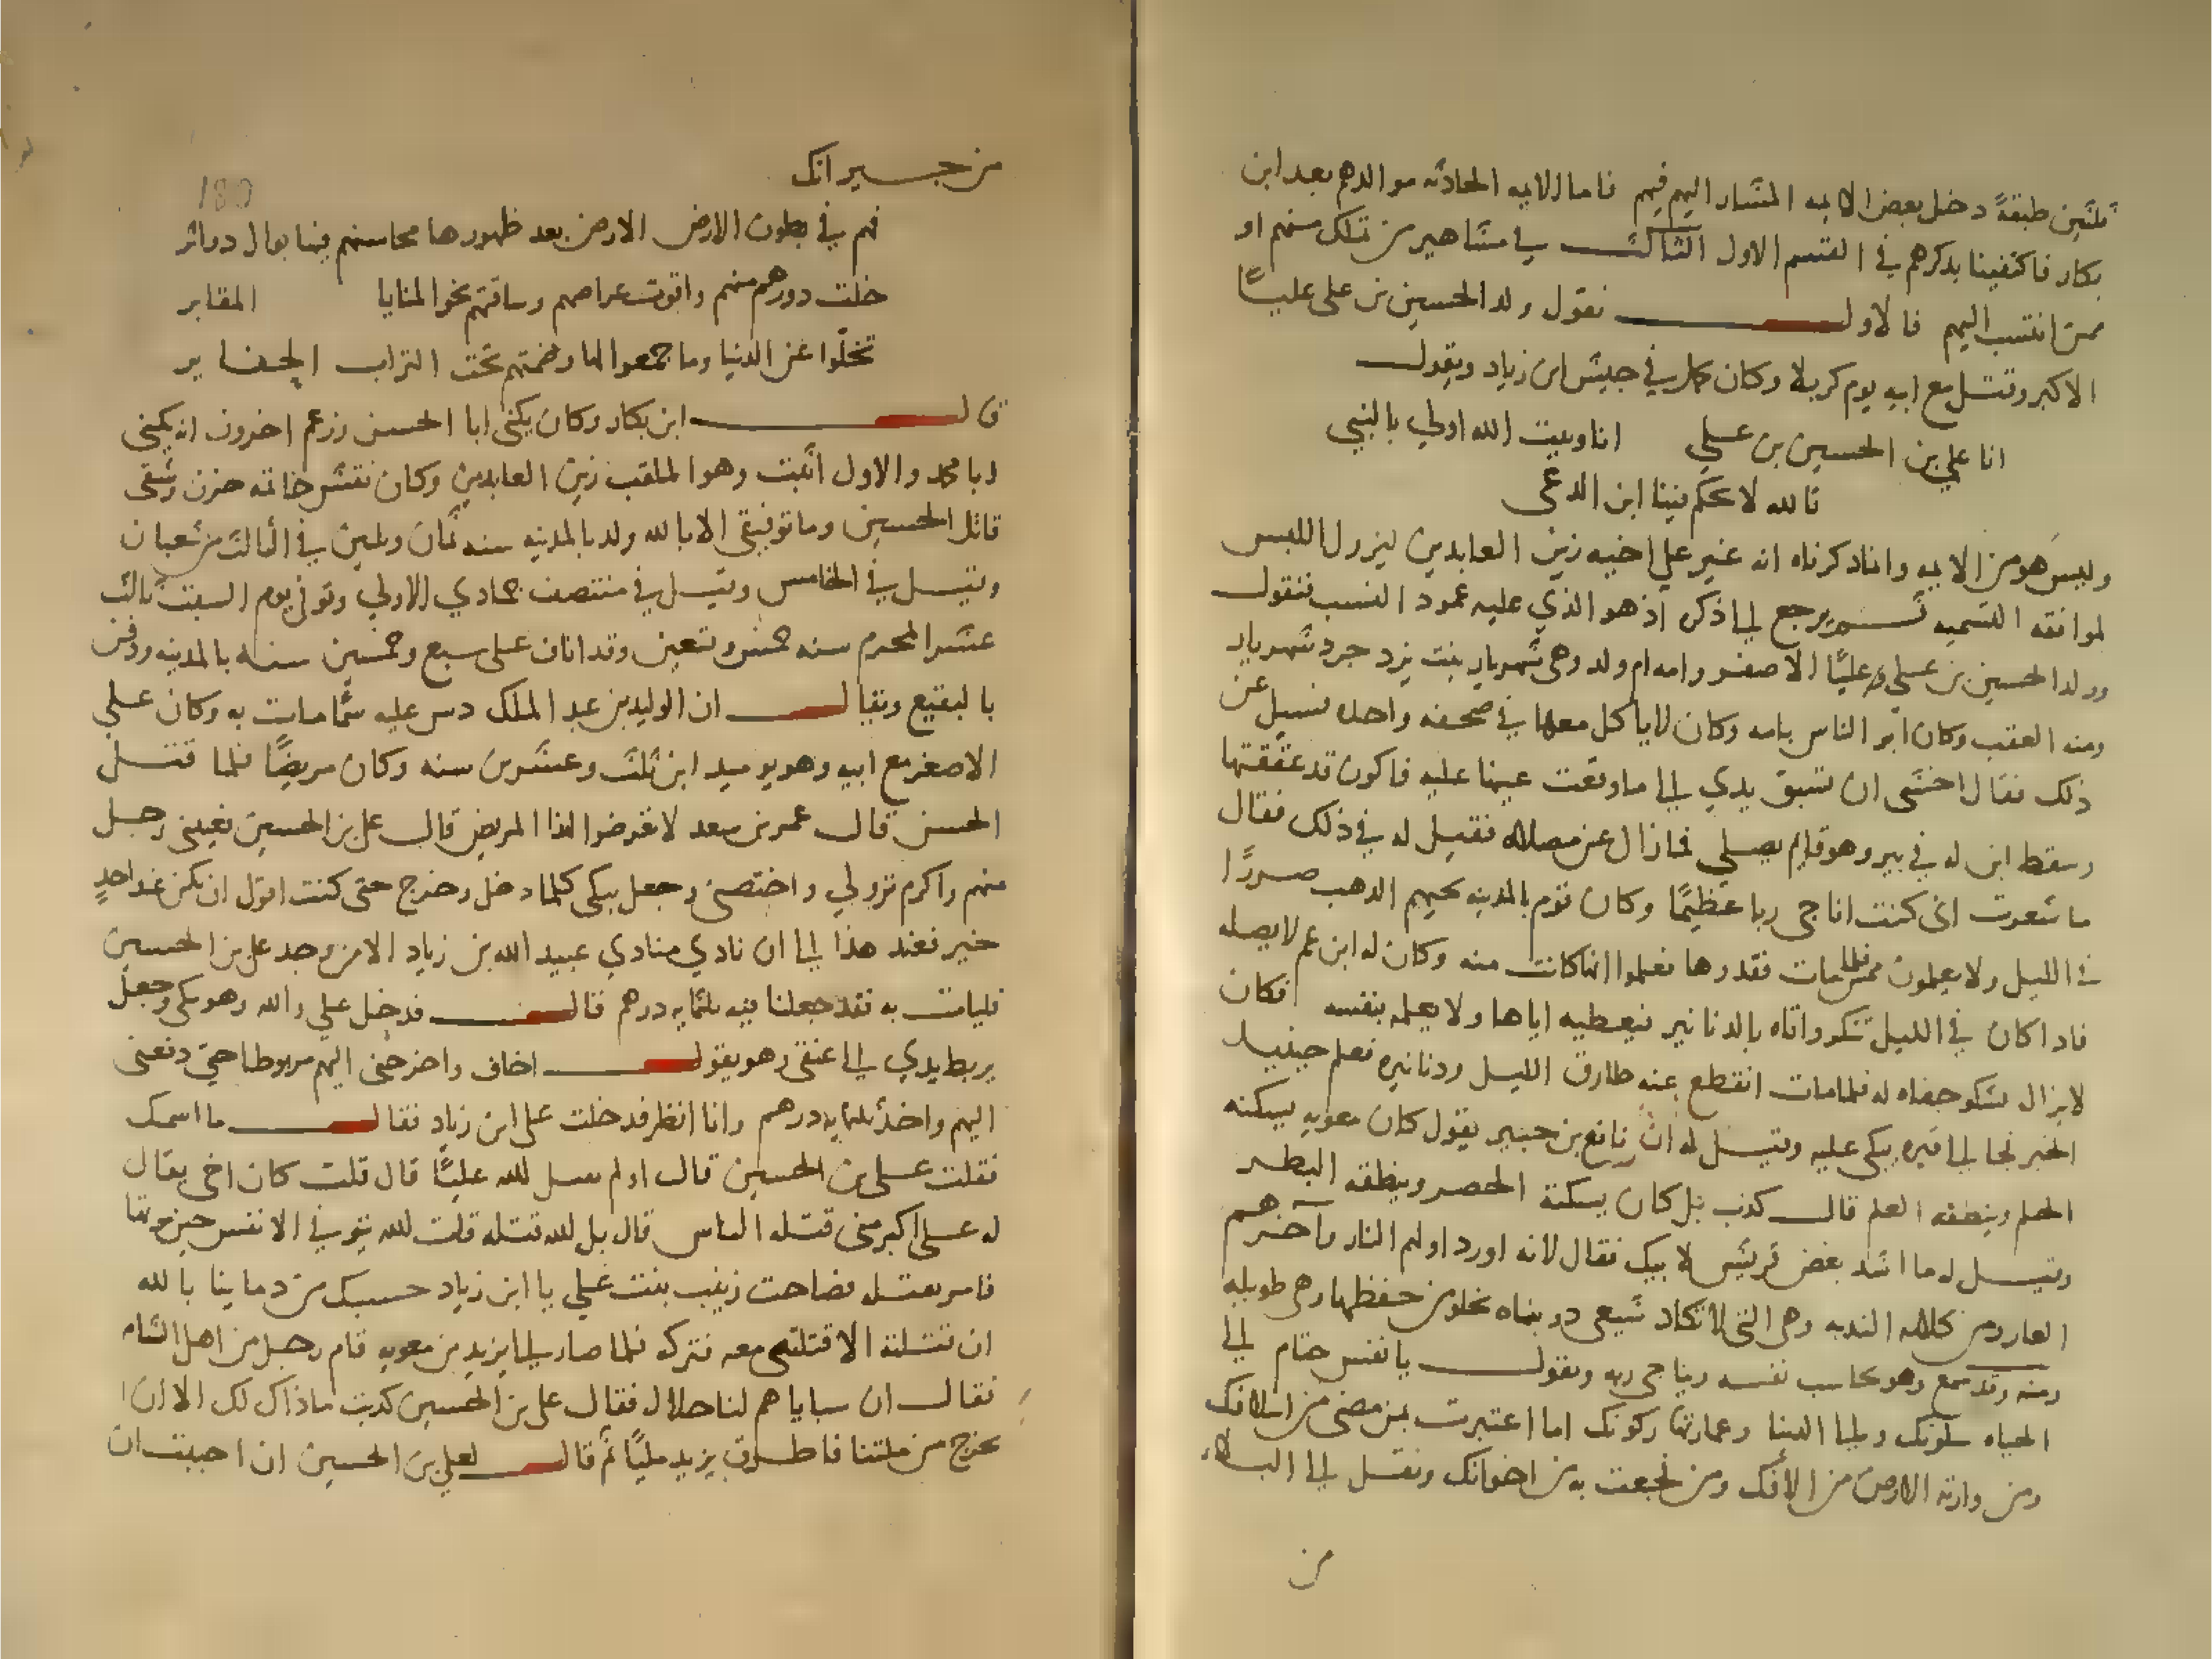 ثلثين طبقةً دخل بعض الايمه المشار اليهم فيهم فاما الايمه الحادثه موالدهم بعد ابن
بكار فاكتفينا بذكرهم في القسم الاول الثالث في مشاهير من تملك منهم او
ممن انتسب اليهم فالاول نقول ولد الحسين بن على عليًا
الاكبر وقتل مع ابيه يوم كربلا وكان يكر في جيش ابن زياد ويقول
انا علي بن الحسين بن علي انا وبيت الله اولي بالنبي
تالله لا يحكم فينا ابن الدعى
وليس هو من الايمه وانما ذكرناه انه غير علي اخيه زين العابدين ليزول اللبس
لموافقه التسميه ثم يرجع الي ذكر اذ هو الذي عليه عمود النسب فنقول
وولد الحسين بن علي عليًا الاصغر وامه ام ولد وهى شهريار بنت يزدجرد شهريار
ومنه العقب وكان ابر الناس بامه وكان لا ياكل معها في صحفه واحده فسيل عن
ذلك فقال اخشى ان تسبق يدي الي ما وقعت عينها عليه فاكون قد عققتها
وسقط ابن له في بير وهو قايم يصلي فما زال عن مصلاه فقيل له في ذلك فقال
ما شعرت انى كنت اناجى ربا عظيمًا وكان قوم بالمدينه يجيهم الذهب صررًا
في الليل ولا يعلمون ممن فلما مات فقدرها فعلموا انها كانت منه وكان له ابن عم لا يصله
فاذا كان في الليل تنكر واتاه بالدنانير فيعطيه اياها ولا يعلمه بنفسه فكان
لا يزال يشكو جفاه له فلما مات انقطع عنه طارق الليل ودنانيره فعلم حينيذ
الخبر فجا الي قبره يبكى عليه وقيل له ان نافع بن جبير يقول كان معويه يسكته
الحلم وينطقه العلم قال كذب بل كان يسكته الحصر وينطقه البطر
وقيل له ما اشد بغض قريش لابيك فقال لانه اورد اولهم النار واخرهم
العار ومن كلامه الندبه وهى التي لا تكاد شيعى دو بناه يخلو من حفظها وهى طويله
ومنه وقد سمع وهو يحاسب نفسه ويناجى ربه ويقول يا نفس حتام الي
الحياه سكونك والي الدنيا وعمارتها ركونك اما اعتبرت بمن مضى من اسلافك
ومن وارته الارض من الافك ومن فجعت به من اخوانك ونقل الي البلاء
من
من جيرانك
180
فهم في بطون الارض الارض بعد ظهورها محاسنهم فيها بوال دواثر
خلت دورهم منهم واقوت عراصهم وساقتهم نحو المنايا المقابر
تخلّوا عن الدنيا وما جمعوا لها وضمتهم تحت التراب الحفاير
قال ابن بكار وكان يكنى ابا الحسن وزعم اخرون انه يكنى
ابا محمد والاول اثبت وهو الملقب زين العابدين وكان نقش خاتمه خزى وشقى
قاتل الحسين وما توفيقى الا بالله ولد بالمدينه سنه ثمان وثلثين في الثالث من شعبان
وقيل في الخامس وقيل في منتصف جمادي الاولي وتوفى يوم السبت ثالث
عشر المحرم سنه خمس وتسعين وقد اناف على سبع وخمسين سنه بالمدينه ودفن
بالبقيع ويقال ان الوليد بن عبد الملك دس عليه سمًا مات به وكان علي
الاصغر مع ابيه وهو يوميذ ابن ثلث وعشرين سنه وكان مريضًا فلما قتل
الحسين قال عمر بن سعد لا تعرضوا لهذا المريض قال على بن الحسين فغيبنى رجل
منهم واكرم نزولي واختصنى وجعل يبكى كلما دخل وخرج حتى كنت اقول ان يكن عند احدٍ
خير فعند هذا الي ان نادي منادي عبيد الله بن زياد الا من وجد على بن الحسين
فليات به فقد جعلنا فيه ثلثمايه درهم قال فدخل علي والله وهو يبكى وجعل
يربط يدي الي عنقى وهو يقول اخاف واخرجنى اليهم مربوطا حتى دفعنى
اليهم واخذ ثلثمايه درهم وانا انظر فدخلت على ابن زياد فقال ما اسمك
فقلت على بن الحسين قال اولم يقتل الله عليًا قال قلت كان اخى يقال
له على اكبر منى قتله الناس قال بل الله قتله قلت الله يتوفى الانفس حين موتها
فامر بقتله فصاحت زينب بنت علي يا ابن زياد حسبك من دماينا بالله
ان قتلته الا قتلتنى معه فتركه فلما صار الي يزيد بن معويه قام رجل من اهل الشام
فقال ان سباياهم لنا حلال فقال على بن الحسين كذبت ماذاك لك الا ان
تخرج من ملتنا فاطرق يزيد مليًا ثم قال لعلى بن الحسين ان احببت ان